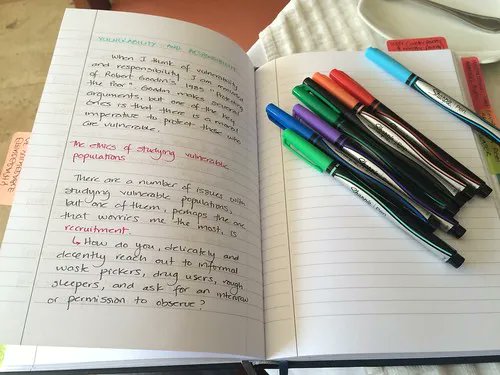 VULNERABILITY AND RESPONSIBILITY
When I think of vulnerability
and responsibility I am reminded
of Robert Goodin's 1985 "Protecting
the Poor". Goodin makes several
arguments, but one of the key
ones is that there is a moral
imperative to protect those who
are vulnerable.
The ethics of studying vulnerable
populations.
There are a number of issues with
studying vulnerable populations,
but one of them, perhaps the one
that worries me the most, is
recruitment.
↳ How do you, delicately and
decently reach out to informal
waste pickers, drug users, rough
sleepers, and ask for an interview
or permission to observe?
Sharpie